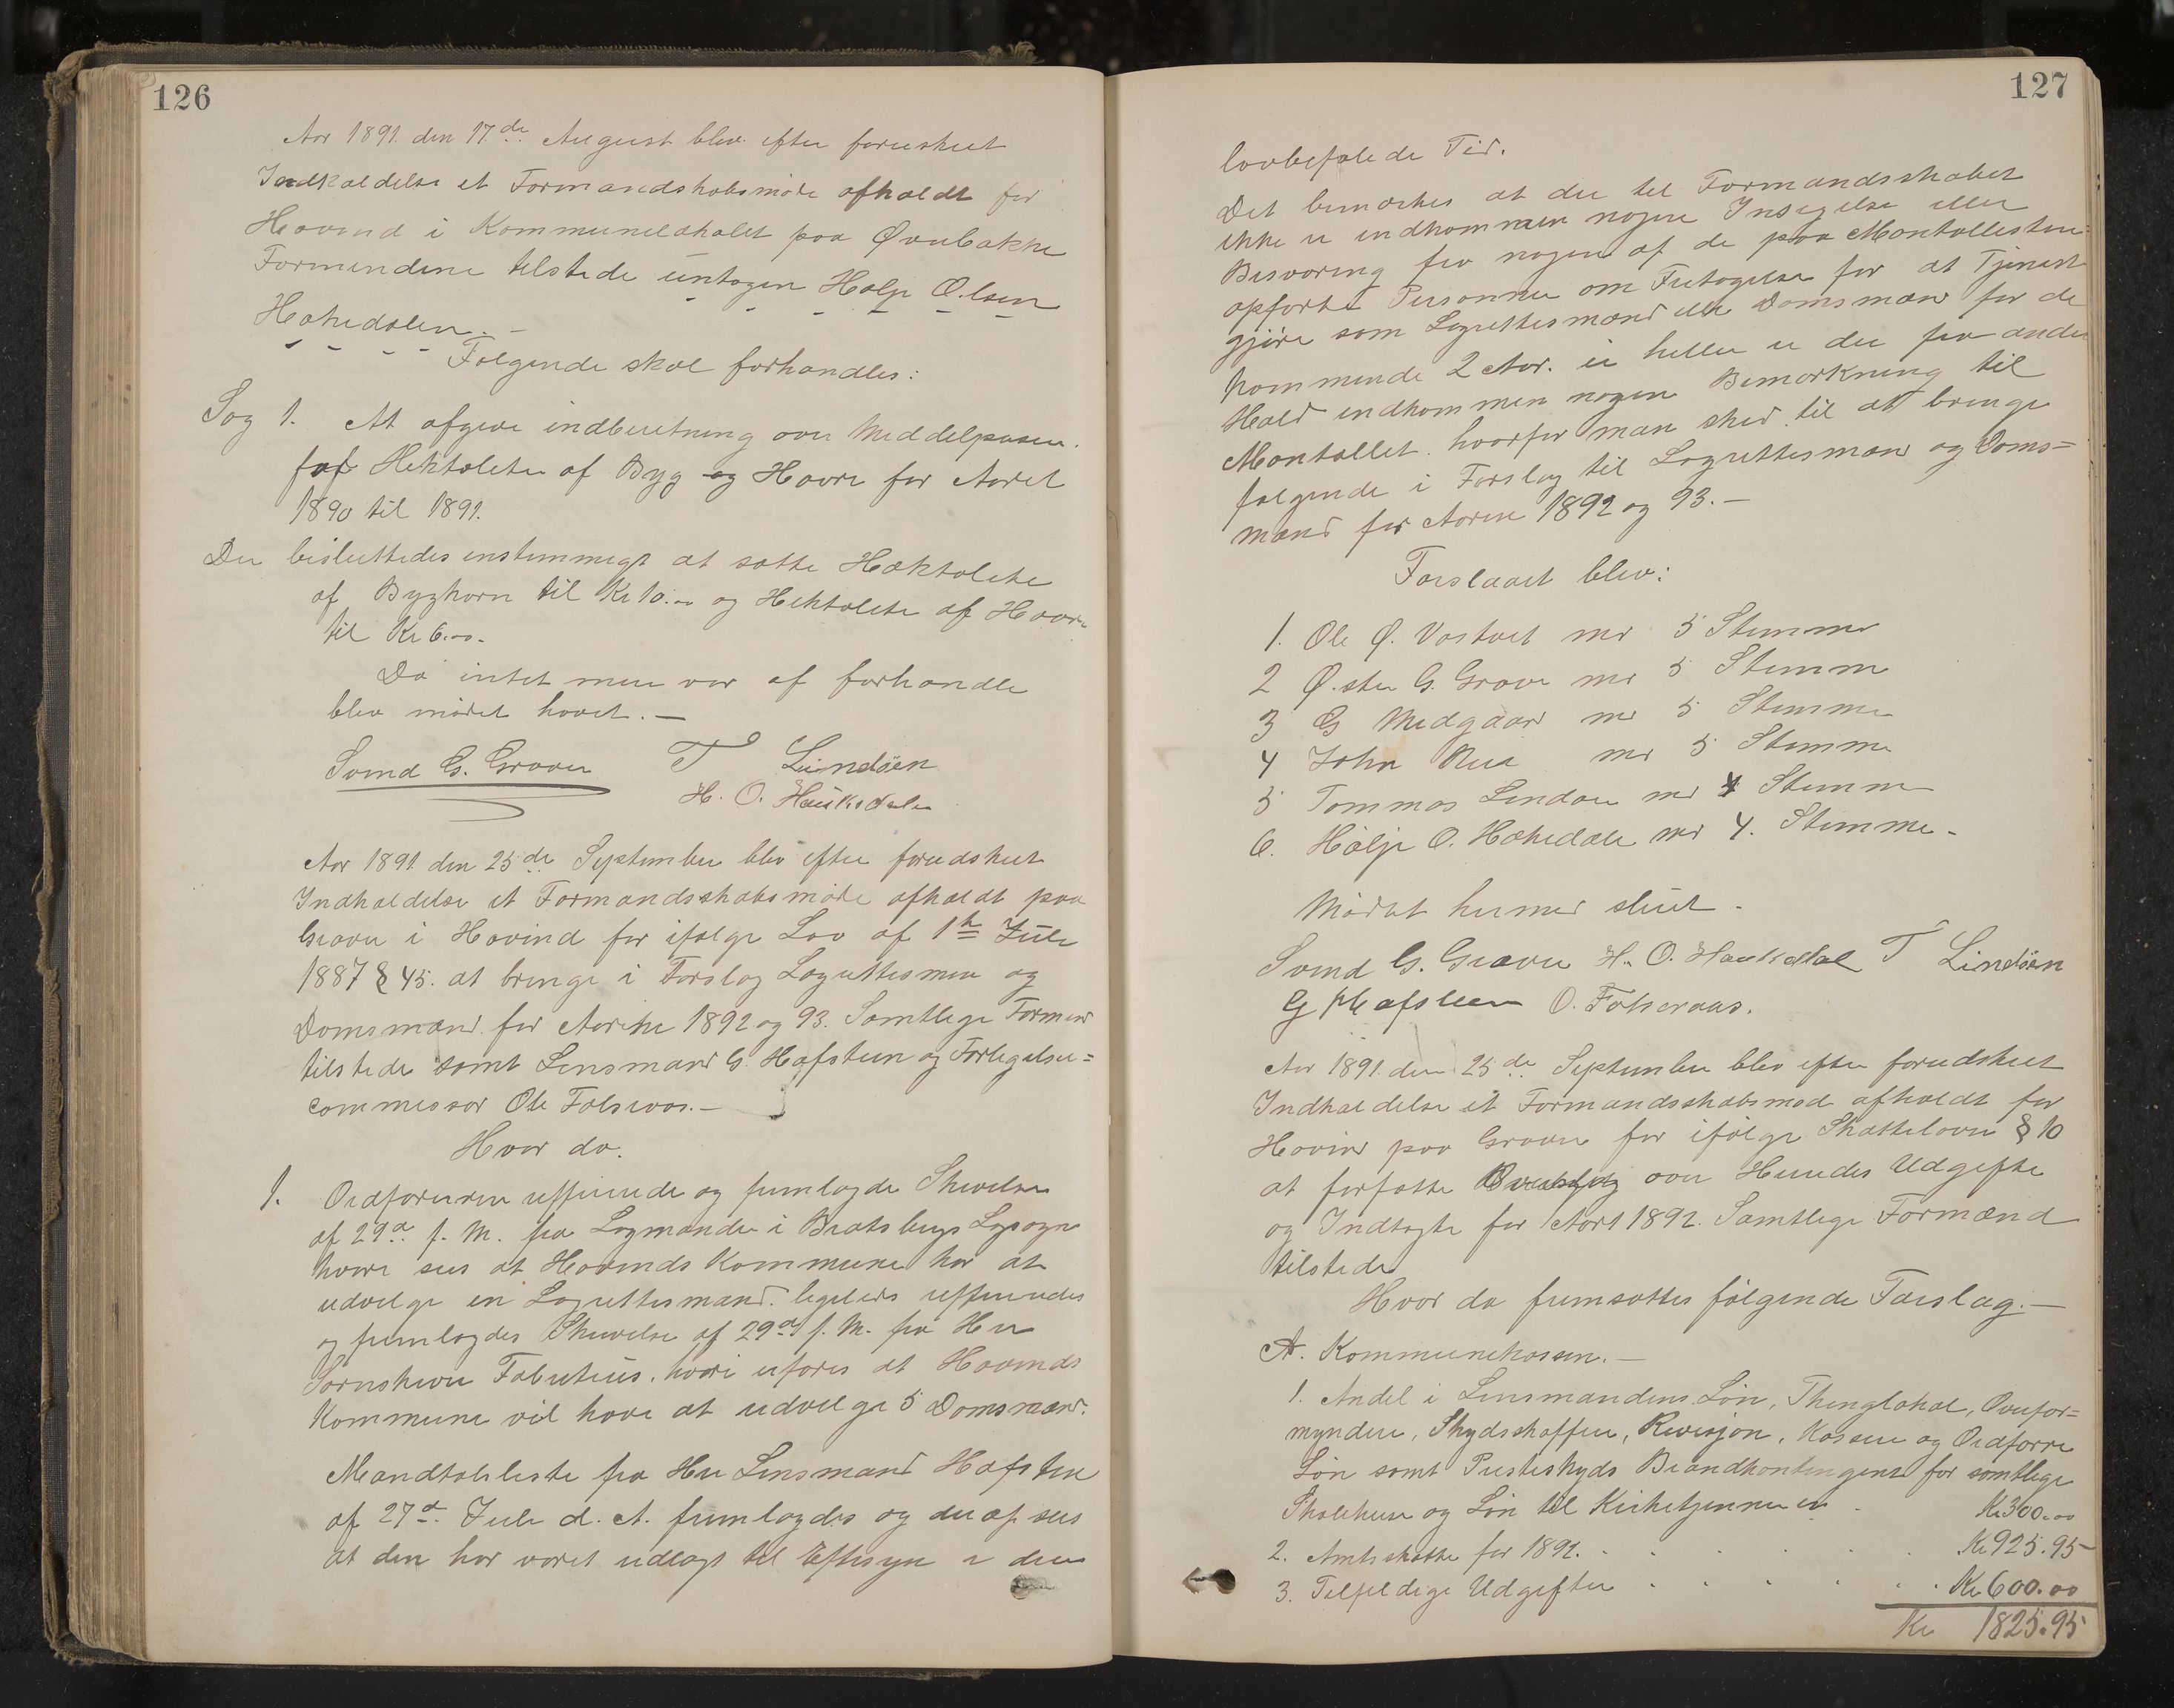 126
Aar 1891 den 17de August blev efter foruskeet
Indkaldelse et Formandskabsmöde afholdt for
Hovind i Kommunelokalet paa Øvrebakke
Formendene tilstede untagen Holje Olsen
Hakedalen. –
Folgende skal forhandles:
Sag 1. At afgive indberetning over Middelprisen
for Hektoleter af Byg og Havre for Aaret
1890 til 1891.
Der besluttedes enstemmigt at sætte Hæktoleter
af Bygkorn til Kr 10.00 og Hektoleter af Havre
til Kr 6.00.
Da intet mere var af forhandle
blev mödet hævet. –
Svend G. Graver T Lindöen
H. O. Haukedalen
Aar 1891 den 25de September blev efter forudskeet
Indkaldelse et Formandsskabsmöde afholdt paa
Graver i Hovind for ifølge Lov af 1ste Juli
1887 § 45. at bringe i Forslag Lagrettesmen og
Domsmænd for Aarene 1892 og 93. Samtlige Formend
tilstede samt Lensmand G. Hafsteen og Forligelses=
commissær Ole Folseraas. –
Hvor da.
1. Ordføreren refererede og fremlagde Skrivelse
af 29de f. M. fra Lagmanden i Bratsbergs Lagsogn
hvori sees at Hovinds Kommune har at
udvelge en Lagrettesmand. ligeledes refereredes
og fremlagdes Skrivelse af 29de f. M. fra Herr
Sorenskriver Fabritius. hvori anføres at Hovinds
Kommune vil have at udvelge 5 Domsmænd.
Mandtalsliste fra Herr Lensmand Hafsten
af 27de Juli d. A. fremlagdes og deraf sees
at den har været udlagt til Eftersyn i den
127
lovbefalede Tid.
Det bemærkes at der til Formandsskabet
ikke er indkommen nogen Insigelse eller
Besværing fra nogen af de paa Mantallisten
opførte Personer om Fritagelse for at Tjenest
gjöre som Lagrettesmænd eller Domsmænd for de
kommende 2 Aar. ei heller er der fra anden
Hold indkommen nogen Bemærkning til
Mantallet. hvorfor man skred til at bringe
følgende i Forslag til Lagrettesmænd og Doms=
mænd for Aarene 1892 og 93. –
Forslaaet blev:
1. Ole Ø. Vaatveit med 5 Stemmer
2 Østen G. Graver med 5 Stemmer
3 G Midgaard med 5 Stemmer
4 John Rua med 5 Stemmer
5 Tommas Lindöen med 4 Stemmer
6. Hölje O. Hakedalen med 4. Stemmer.
Mödet hermed sluttet.
Svend G. Graver H. O. Haukedal T Lindöen
G Hafsteen O. Folseraas.
Aar 1891 den 25de September blev efter forudskeet
Indkaldelse et Formandsskabsmöd afholdt for
Hovind paa Graver for ifølge Skatteloven § 10
at forfatte Overslag over Herredets Udgifter
og Indtægter for Aaret 1892. Samtlige Formænd
tilstede
Hvor da fremsattes følgende Forslag. –
A. Kommunekassen. –
1. Andel i Lensmandens Lön, Thinglokal, Overfor=
myndere, Skydsskaffere, Revisjon, Kasserer og Ordfører
Lön samt Presteskyds Brandkontingent for samtlige
Skolehuse og Lön til Kirketjenneren Kr 300.00
2. Amtsskatte for 1892. Kr 925.95
3. Tilfeldige Udgifter Kr 600.00
Kr 1825.95